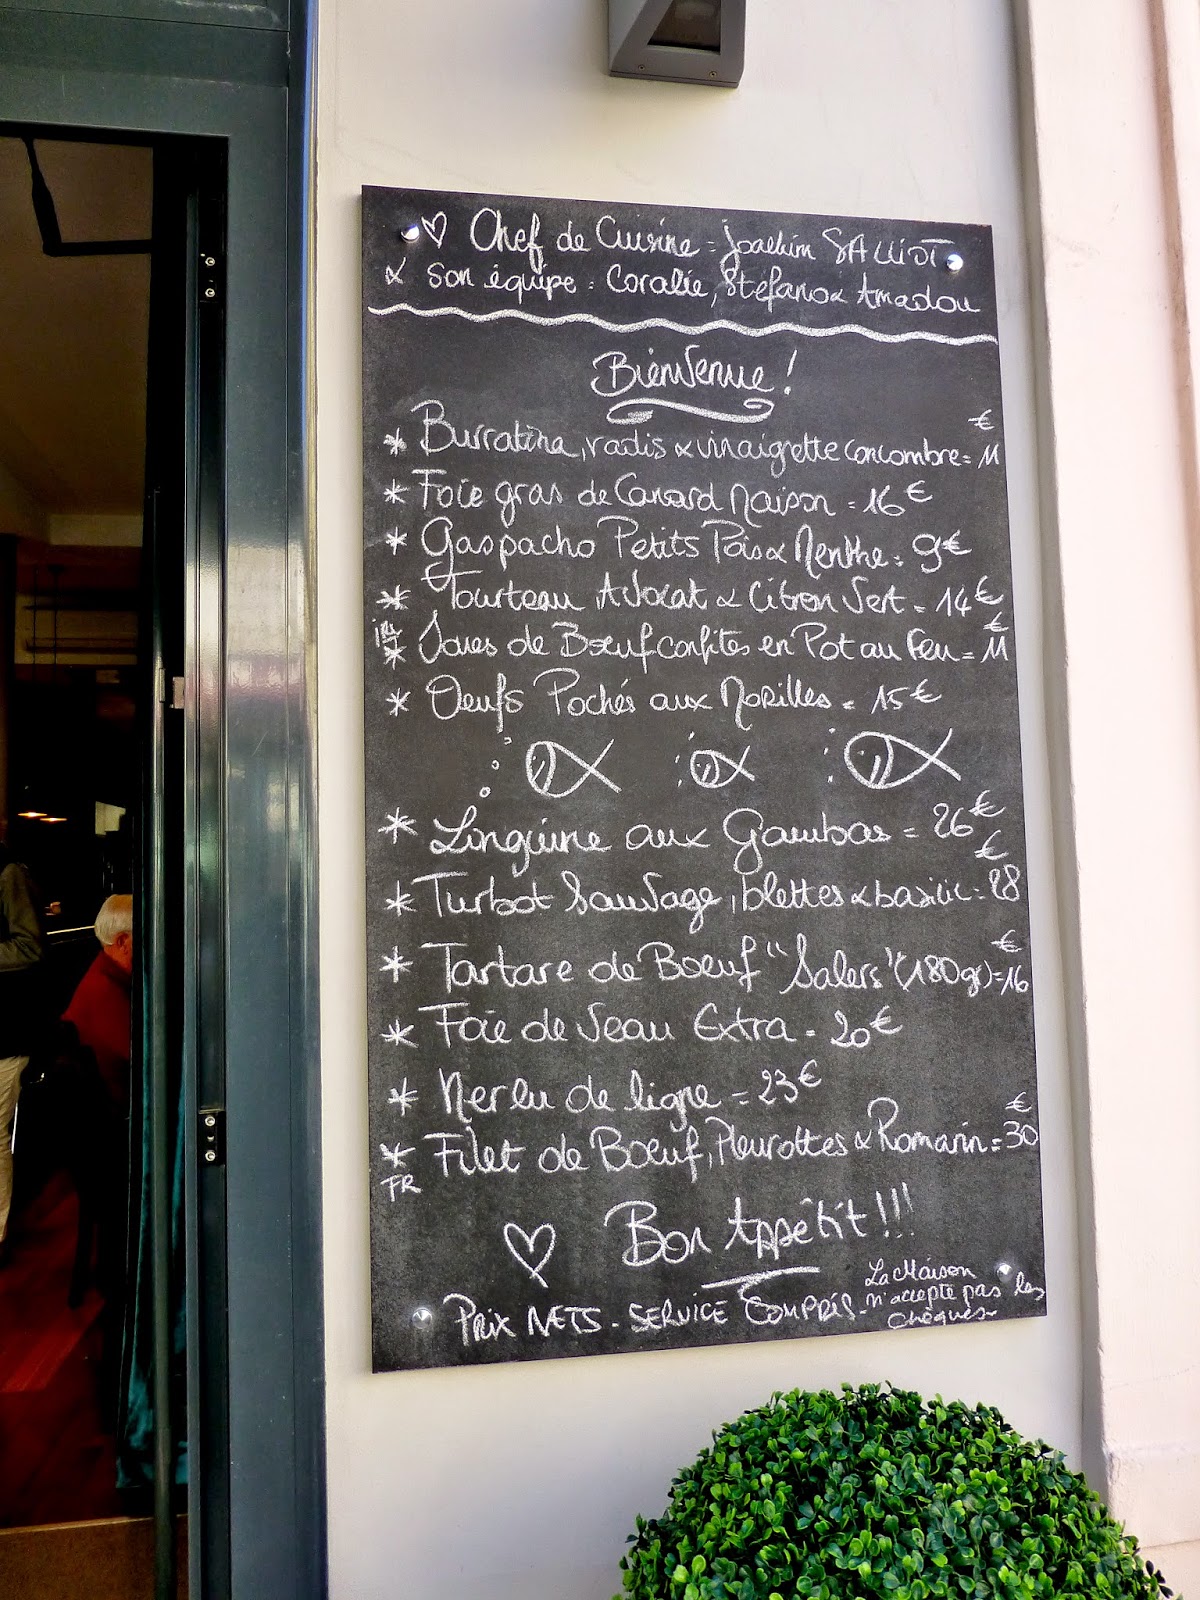 ♡ Chef de Cuisine = Joachim SALLIOT
& Son équipe : Coralie, Stéfano & Amadou
Bienvenue !
* Burratina, radis & vinaigrette concombre = 11€
* Foie gras de Canard Maison = 16€
* Gaspacho Petits Pois & Menthe = 9€
* Tourteau, Avocat & Citron Vert = 14€
* Joues de Boeuf confites en Pot au Feu = 11€
* Oeufs Pochés aux Morilles = 15€
* Linguine aux Gambas = 26€
* Turbot Sauvage, blettes & basilic = 28€
* Tartare de Boeuf "Salers" (180gr) = 16€
* Foie de Veau Extra = 20€
* Merlu de ligne = 23€
* Filet de Boeuf, Pleurottes & Romarin = 30€
FR
Bon Appêtit !!!
PRIX NETS - SERVICE COMPRIS -
La Maison
n'accepte pas les
chèques -